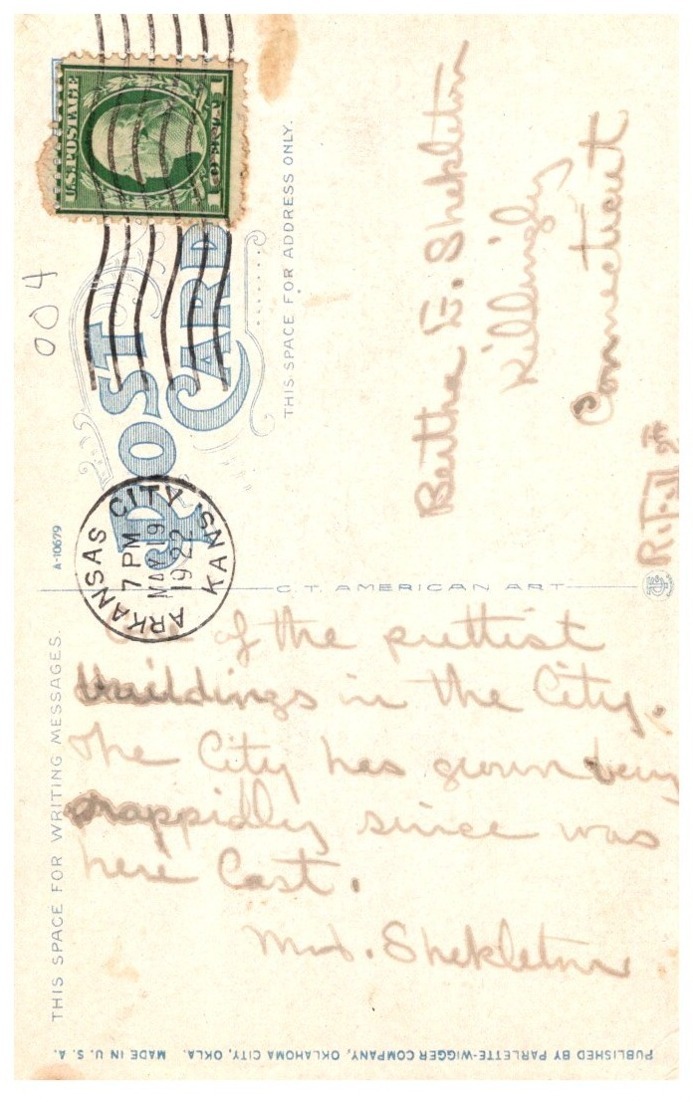 THIS SPACE FOR WRITING MESSAGES.
One of the prettist
buildings in the City.
The City has grown very
rappidly since was
here Last.
Mrs. Shekleton
A-10679
ARKANSAS CITY KANS
7 PM
MAY 19
1922
C.T. AMERICAN ART
POST
CARD
THIS SPACE FOR ADDRESS ONLY.
U.S. POSTAGE
1 CENT 1
004
Bertha E. Shekleton
Killingly
Connecticut
PUBLISHED BY PARLETTE-WIGGER COMPANY, OKLAHOMA CITY, OKLA. MADE IN U. S. A.